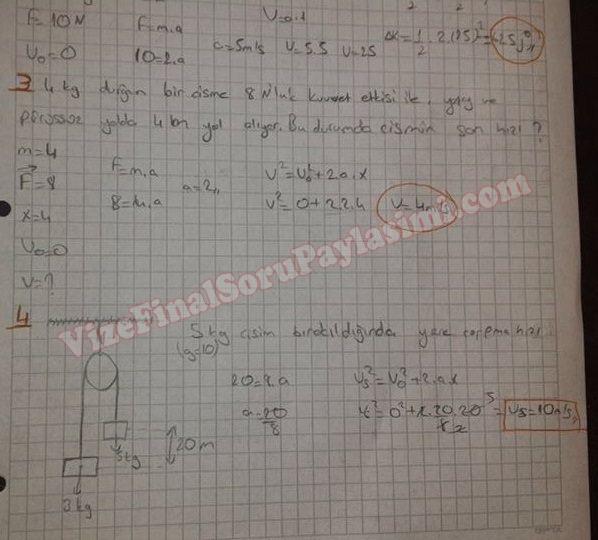 F=10N F=m.a V=a.t
V₀=0 10=2.a a=5m/s V=5.5 V=25 ΔK=1/2.2.(25)²=625j
3 4 kg durgun bir cisme 8 N'luk kuvvet etkisi ile, yatay ve
pürüssüz yolda 4 m yol alıyor. Bu durumda cismin son hızı?
m=4
F=m.a V²=V₀²+2a.x
F=8 a=2
8=4.a V²=0+2.2.4 V=4m/s
x=4
V₀=0
V=?
4 5 kg cisim bırakıldığında yere çarpma hızı
(g=10)
20=8.a Vs²=V₀²+2.ax
a=20/8 Vs²=0²+2.20.20/8 = Vs=10m/s
20m
5kg
3kg
VizeFinalSoruPaylasimi.com